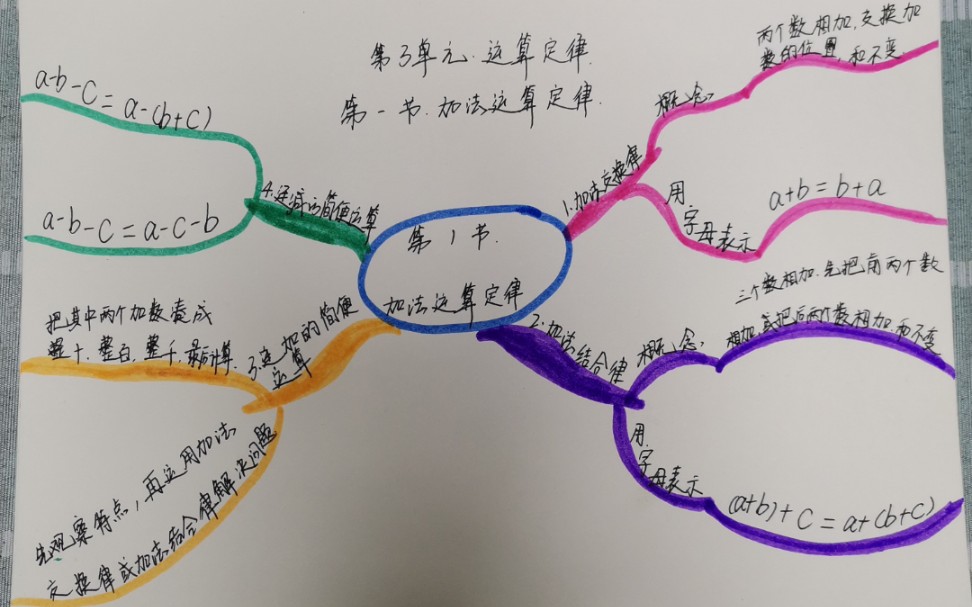 第3单元.运算定律.
第一节.加法运算定律.
第1节.
加法运算定律
1.加法交换律
概念
两个数相加,交换加
数的位置,和不变.
用
字母表示
a+b=b+a
2.加法结合律
概念,
三个数相加.先把前两个数
相加,或把后两个数相加.和不变
用
字母表示
(a+b)+c=a+(b+c)
3.连加的简便
运算
把其中两个加数凑成
整十、整百、整千.最后计算.
先观察特点,再运用加法
交换律或加法结合律解决问题
4.连减的简便运算
a-b-c=a-(b+c)
a-b-c=a-c-b